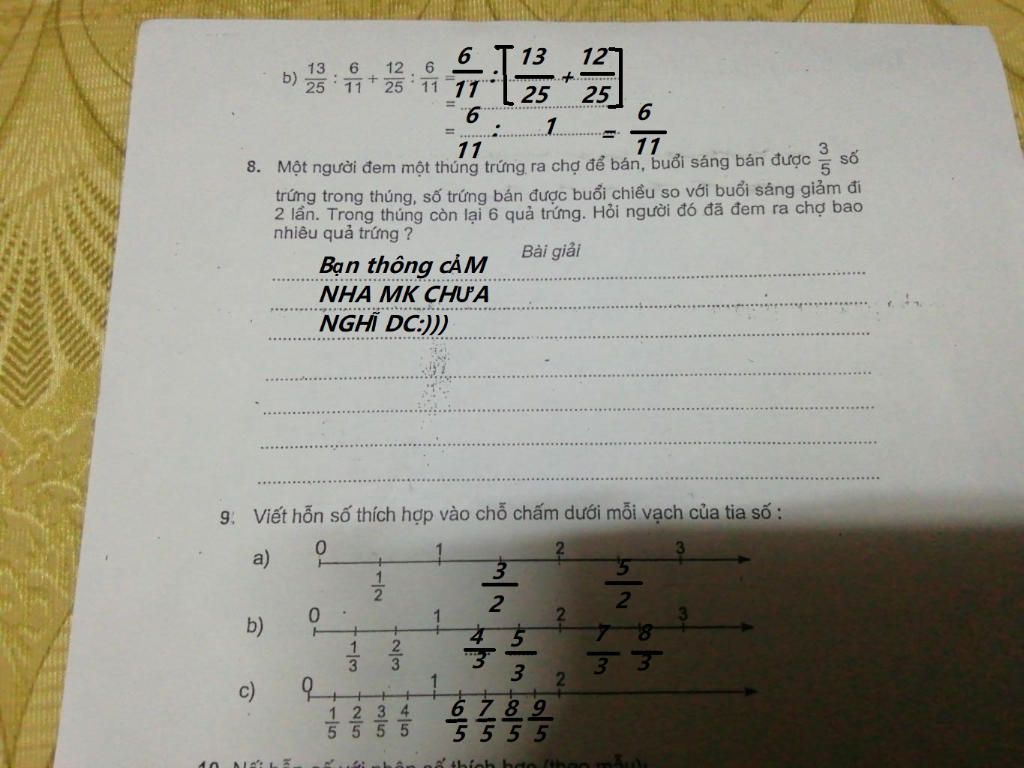 b) 13/25 : 6/11 + 12/25 : 6/11 = 6/11 : [13/25 + 12/25]
=
= 6/11 : 1 = 6/11
8. Một người đem một thúng trứng ra chợ để bán, buổi sáng bán được 3/5 số
trứng trong thúng, số trứng bán được buổi chiều so với buổi sáng giảm đi
2 lần. Trong thúng còn lại 6 quả trứng. Hỏi người đó đã đem ra chợ bao
nhiêu quả trứng ?
Bài giải
Bạn thông cẢM
NHA MK CHƯA
NGHĨ DC:)))
9. Viết hỗn số thích hợp vào chỗ chấm dưới mỗi vạch của tia số :
a) 0 1 2 3
1/2 3/2 5/2
b) 0 1 2 3
1/3 2/3 4/3 5/3 7/3 8/3
c) 0 1 2
1/5 2/5 3/5 4/5 6/5 7/5 8/5 9/5
10. Nối hỗn số với phân số thích hợp (theo mẫu):